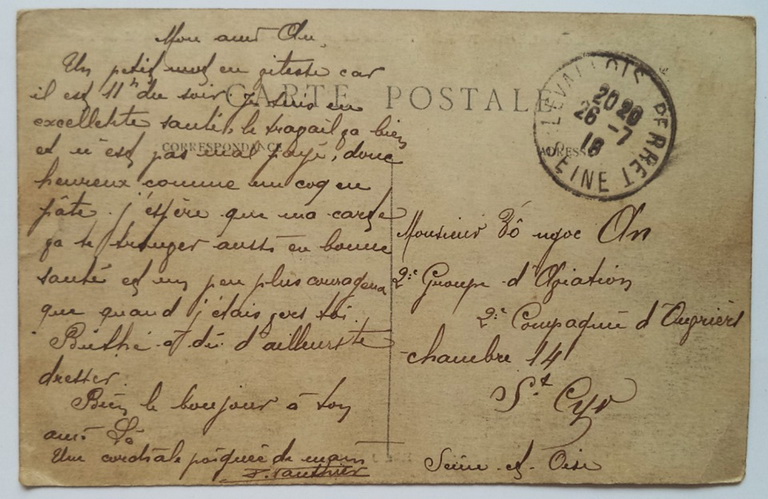 Mon ami An,
Un petit mot en vitesse car
il est 11h du soir, je suis en
excellente santé, le travail va bien
et n'est pas mal payé, donc
heureux comme un coq en
pâte. j'espère que ma carte
va te trouver aussi en bonne
santé et un peu plus courageux
que quand j'étais vers toi.
Berthe a dû d'ailleurs te
dresser.
Bien le bonjour à ton
ami Lê
Une cordiale poignée de main
CARTE POSTALE
CORRESPONDANCE
ADRESSE
LEVALLOIS PERRET
20 20
26 - 7
18
SEINE
Monsieur Võ ngoc An
2e Groupe d'Aviation
2e Compagnie d'Ouvriers
chambre 14
St Cyr
Seine et Oise